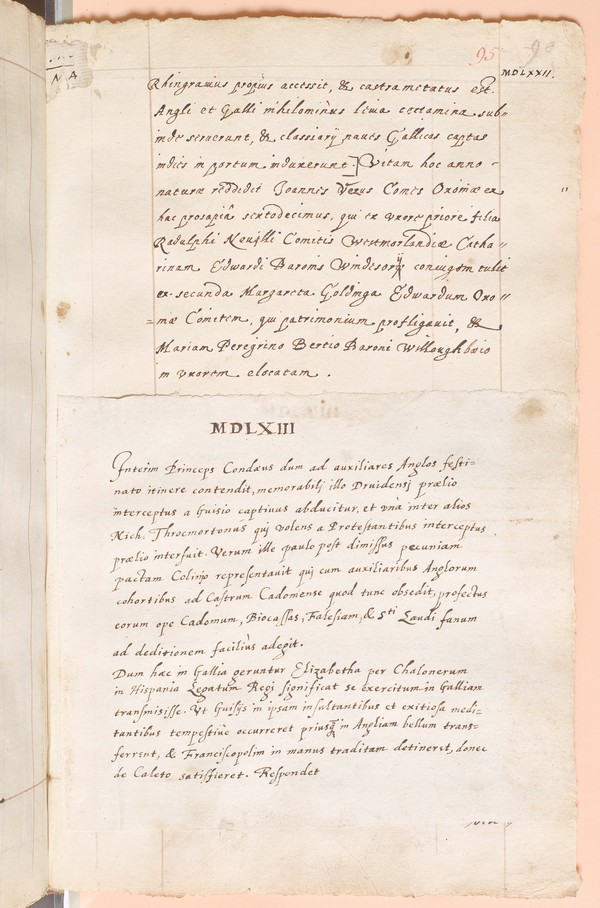 95 98
MDLXXII.
NA
Rhingravius propius accessit, & castrametatus est.
Angli et Galli nihilominus levia certamina sub-
inde seruerunt, & classiarij naues Gallicas captas
indies in portum induxerunt.] Vitam hoc anno -
naturæ reddidit Joannes Verus Comes Oxoniæ ex
hac prosapiâ sextodecimus, qui ex vxore priore filia
Radulphi Neuilli Comitis Westmorlandiæ Catha"
rinam Edwardi Baronis Windesorij coniugem tulit
ex secunda Margareta Goldinga Edwardum Oxo"
=niæ Comitem, qui patrimonium profligauit, &
Mariam Peregrino Bertio Baroni Willoughbæio
in vxorem elocatam.
MDLXIII
Interim Princeps Condæus dum ad auxiliares Anglos festi=
nato itinere contendit, memorabilj illo Druidensj prælio
interceptus a Guisio captiuus abducitur, et vnà inter alios
Nich. Throcmortonus quj volens a Protestantibus interceptus
prælio interfuit. Verum ille paulo post dimissus pecuniam
pactam Colinio repræsentauit quj cum auxiliaribus Anglorum
cohortibus ad Castrum Cadomense quod tunc obsedit, profectus
eorum ope Cadomum, Biocassas, Falesiam, & Sti Laudi fanum
ad deditionem facilius adegit.
Dum hæc in Gallia geruntur Elizabetha per Chalonerum
in Hispania Legatum Regi significat se exercitum in Galliam
transmisisse. Vt Guisijs in ipsam insultantibus et exitiosa medi=
tantibus tempestiue occurreret priusq in Angliam bellum trans=
ferrent, & Franciscopolim in manus traditam detineret, donec
de Caleto satisfieret. Respondet